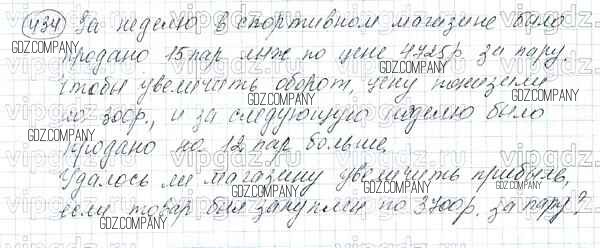 434 За неделю в спортивном магазине было
продано 15 пар лыж по цене 4725р за пару.
Чтобы увеличить оборот, цену понизили
по 300р., и за следующую неделю было
продано на 12 пар больше.
Удалось ли магазину увеличить прибыль,
если товар был закуплен по 3700р. за пару?
GDZ.COMPANY
vipgdz.ru